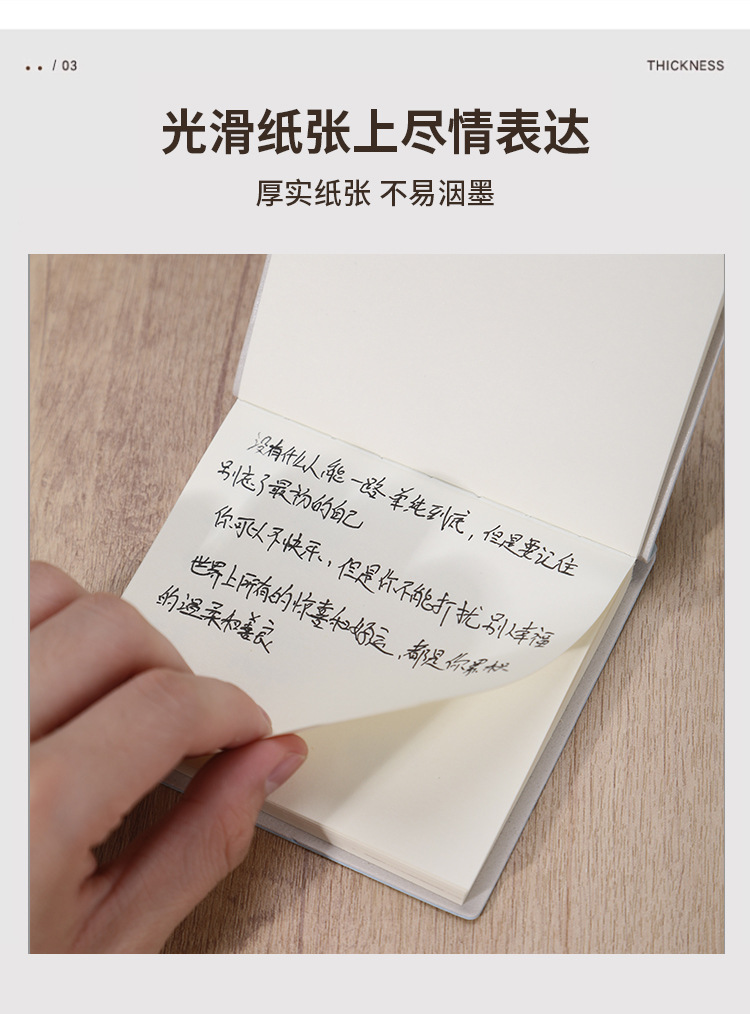 / 03
THICKNESS
光滑纸张上尽情表达
厚实纸张 不易洇墨
没有什么人能一路单纯到底，但是要记住
别忘了最初的自己
你可以不快乐，但是你不能打扰别人幸福
世界上所有的惊喜和好运，都是你累积
的温柔和善良